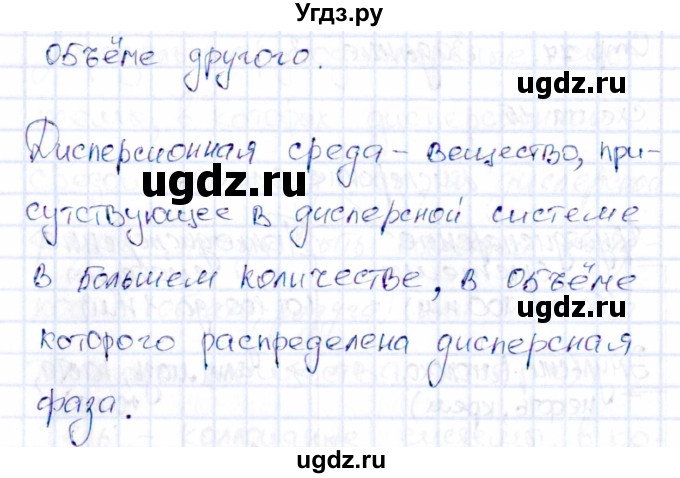 Угдз.ру
объёме другого.
ugdz.ru
ugdz.ru
Дисперсионная среда – вещество, при-
ugdz.ru
сутствующее в дисперсной системе
в большем количестве, в объёме
ugdz.ru
которого распределена дисперсная
фаза.
ugdz.ru
ugdz.ru